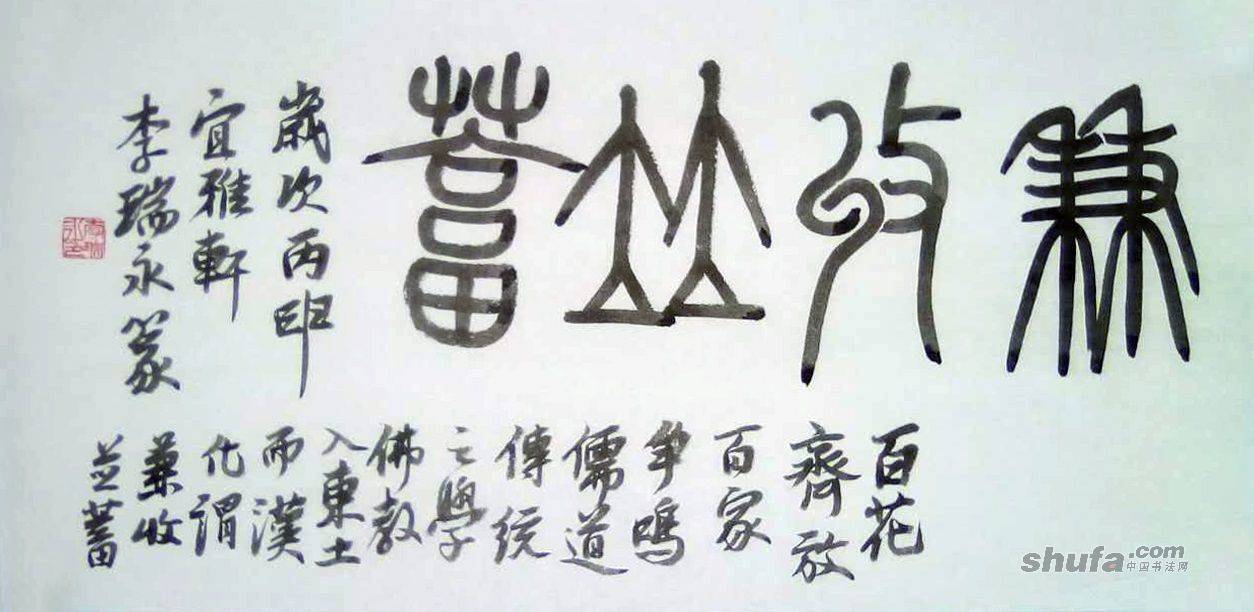 兼收竝蓄
歲次丙申
宜雅軒
李瑞永篆
百花
齊放
百家
爭鳴
儒道
傳統
之學
佛教
入東土
而漢
化謂
兼收
並蓄
shufa.com
中国书法网